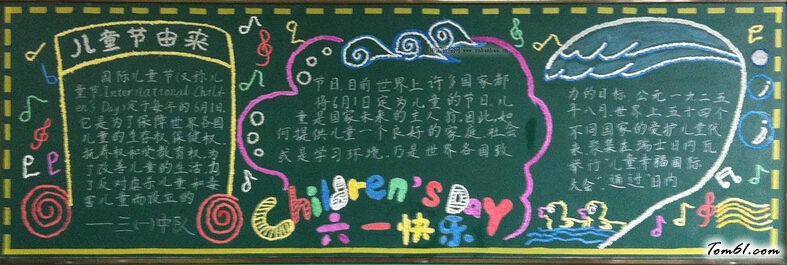 儿童节由来
国际儿童节(又称儿
童节,International Child
en's Day)定于每年的6月1日。
它是为了保障世界各国
儿童的生存权、保健权、
抚养权和受教育权,为
了改善儿童的生活,为
了反对虐杀儿童和毒
害儿童而设立的
——三(一)中队
节日,目前世界上许多国家都
将6月1日定为儿童的节日。儿
童是国家未来的主人翁。因此,如
何提供儿童一个良好的家庭、社会
或是学习环境,乃是世界各国致
Children's Day
六一快乐
力的目标。公元一九二五
年八月,世界上五十四个
不同国家的爱护儿童代
表,聚集在瑞士日内瓦
举行"儿童幸福国际
大会",通过"日内
Tom61.com